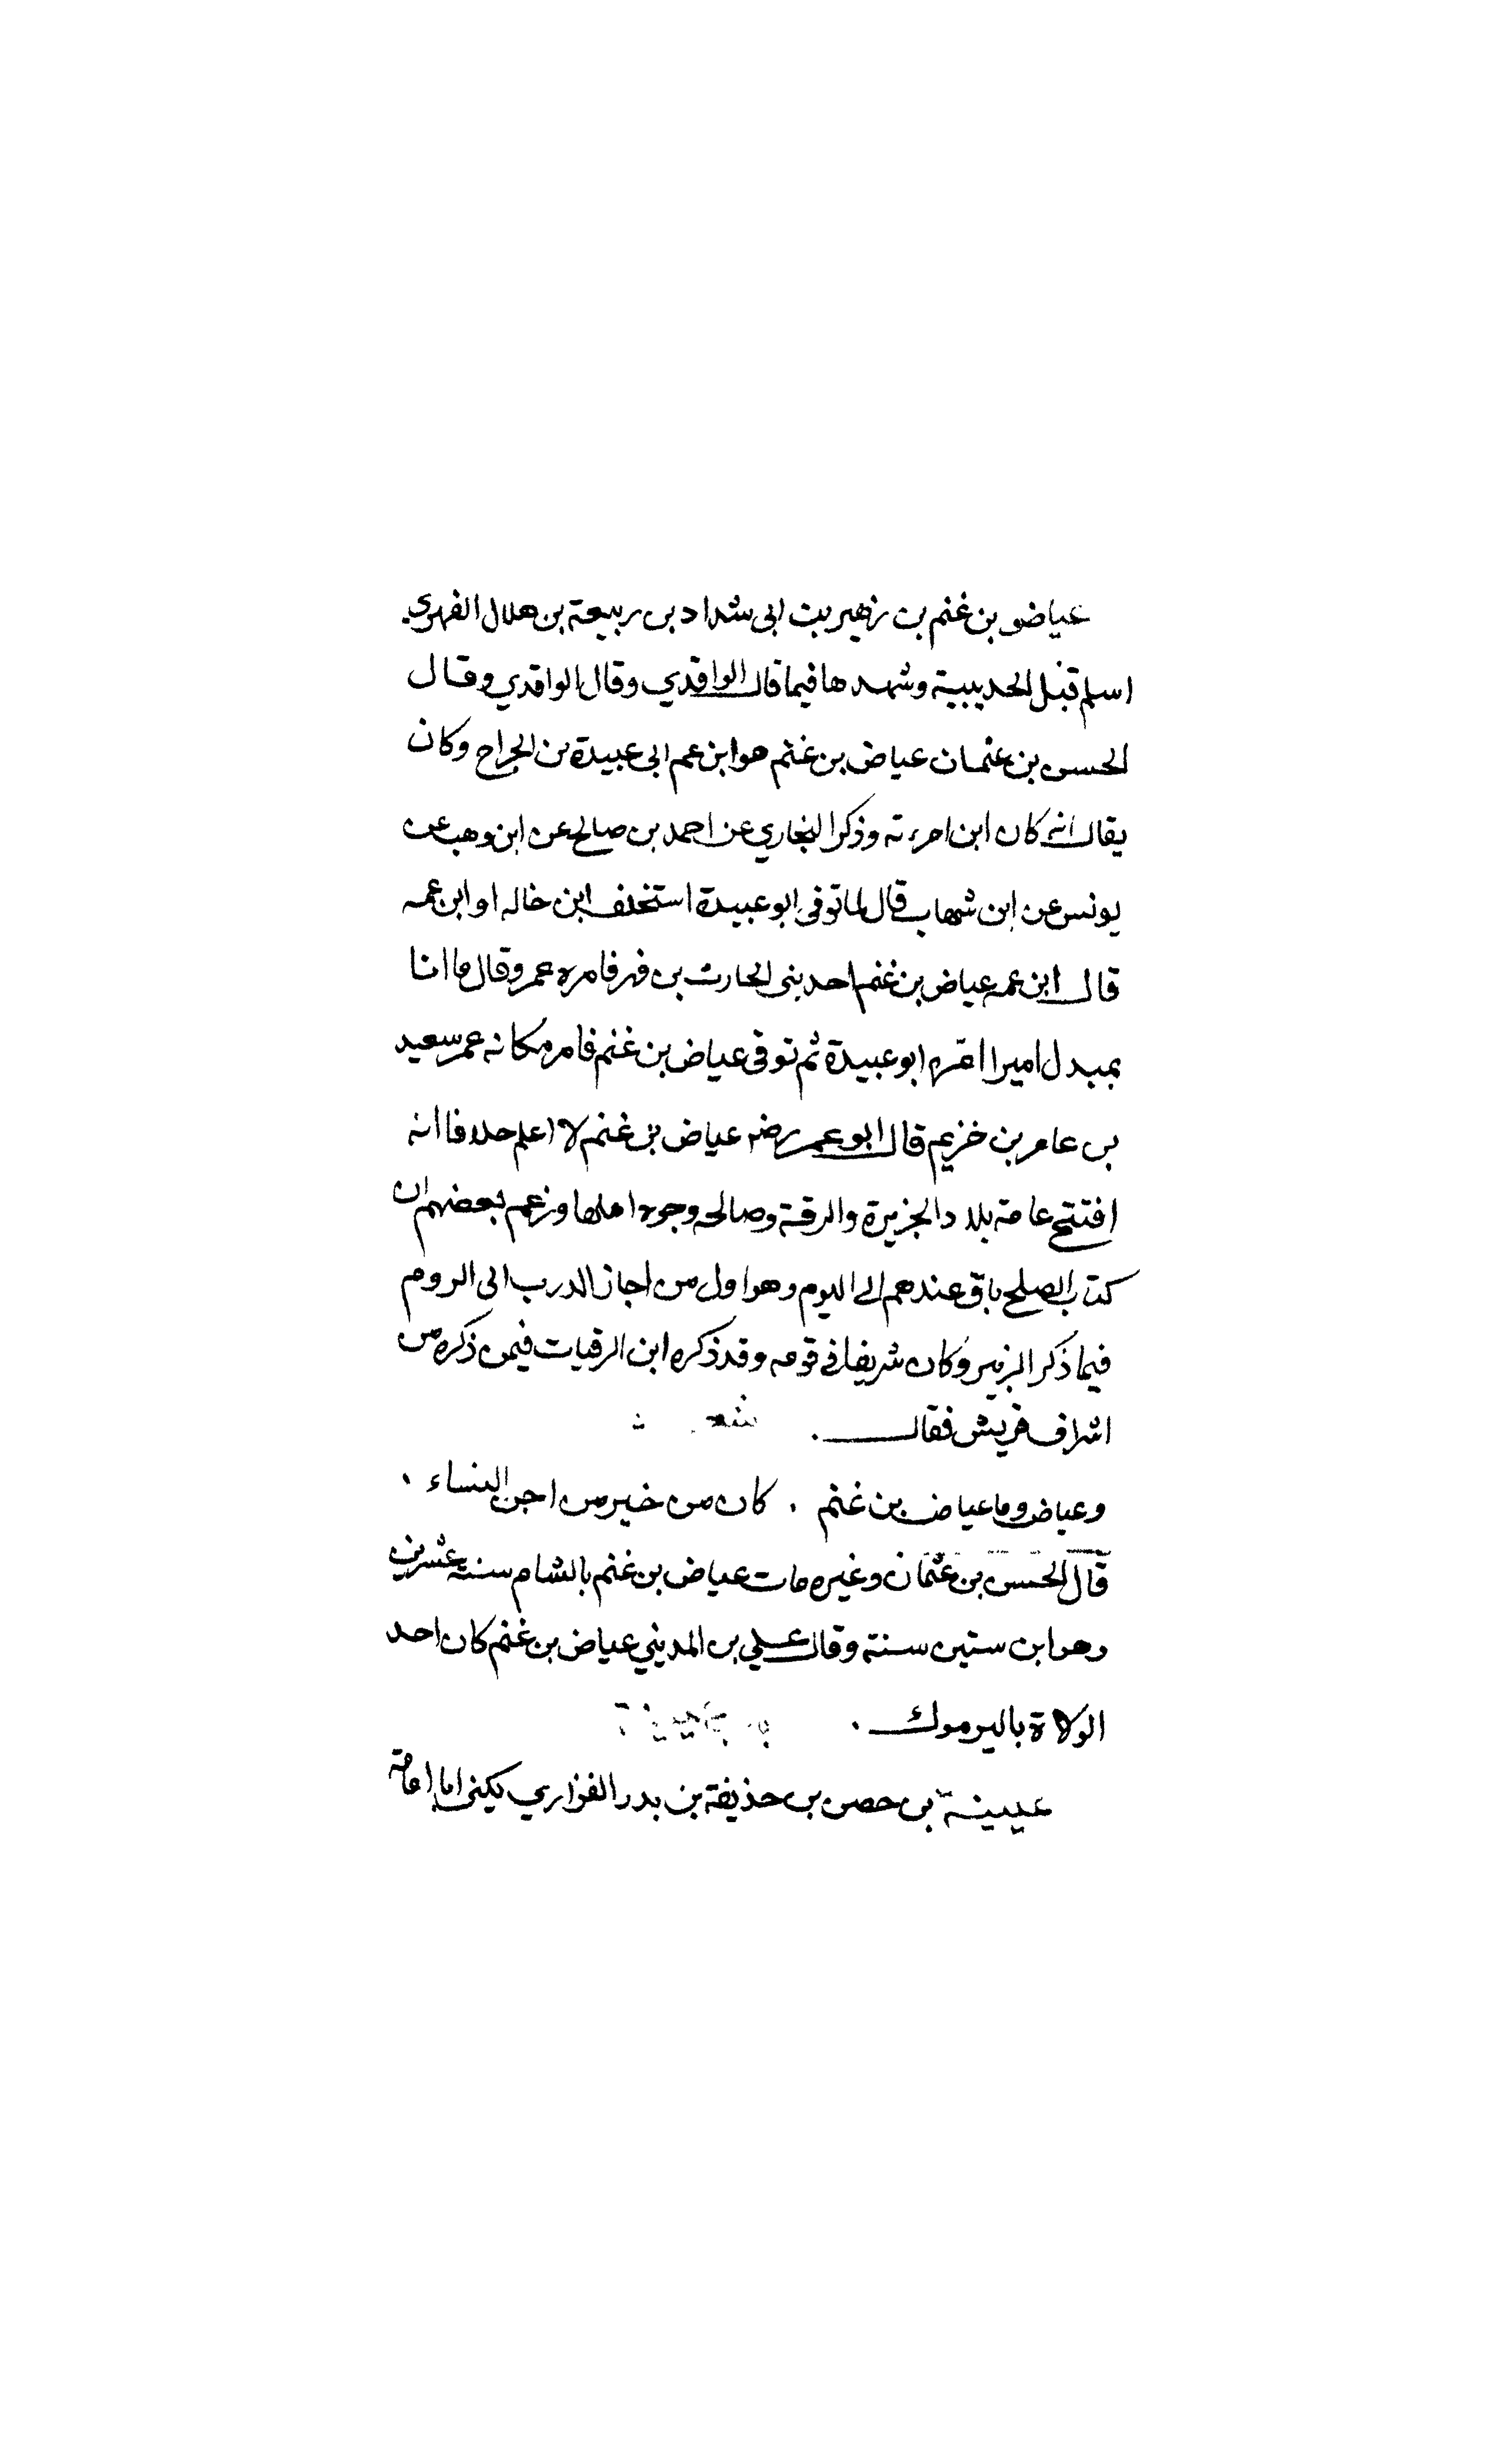 عياض بن غنم بن زهير بن ابى شداد بن ربيعة بن هلال الفهري.
اسلم قبل الحديبية وشهدها فيما قال الواقدي وقال الواقدي وقال
الحسن بن عثمان عياض بن غنم هو ابن عم ابى عبيدة بن الجراح وكان
يقال انه كان ابن امرءته وذكر البخاري عن احمد بن صالح عن ابن وهب عن
يونس عن ابن شهاب قال لما توفى ابو عبيدة استخلف ابن خاله او ابن عمه
قال ابن عمه عياض بن غنم احد بنى الحارث بن فهر فامره عمر وقال ما انا
بمبدل اميرا امّره ابو عبيدة ثم توفى عياض بن غنم فامر مكانه عمر سعيد
بن عامر بن خزيم قال ابو عمر رضه عياض بن غنم لا اعلم خلافا انه
افتتح عامة بلاد الجزيرة والرقة وصالحه وجوه اهلها وزعم بعضهم ان
كتاب الصلح باق عندهم الى اليوم وهو اول من اجاز الدرب الى الروم
فيما ذكر الزبير وكان شريفا فى قومه وقد ذكره ابن الرقيات فيمن ذكره من
اشراف قريش فقال . شعر
وعياض وما عياض بن غنم . كان من خير من اجن النساء .
قال الحسن بن عثمان وغيره مات عياض بن غنم بالشام سنة عشرين
وهو ابن ستين سنة وقال علي بن المديني عياض بن غنم كان احد
الولاة باليرموك .
عيينة بن حصن بن حذيفة بن بدر الفزاري يكنى ابا